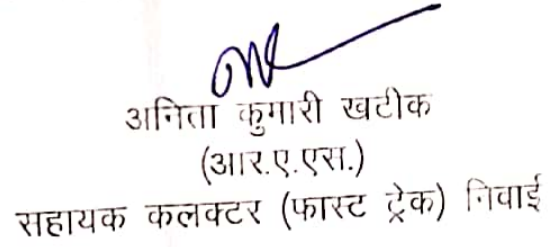 अनिता कुमारी खटीक
(आर.ए.एस.)
सहायक कलक्टर (फास्ट ट्रेक) निवाई